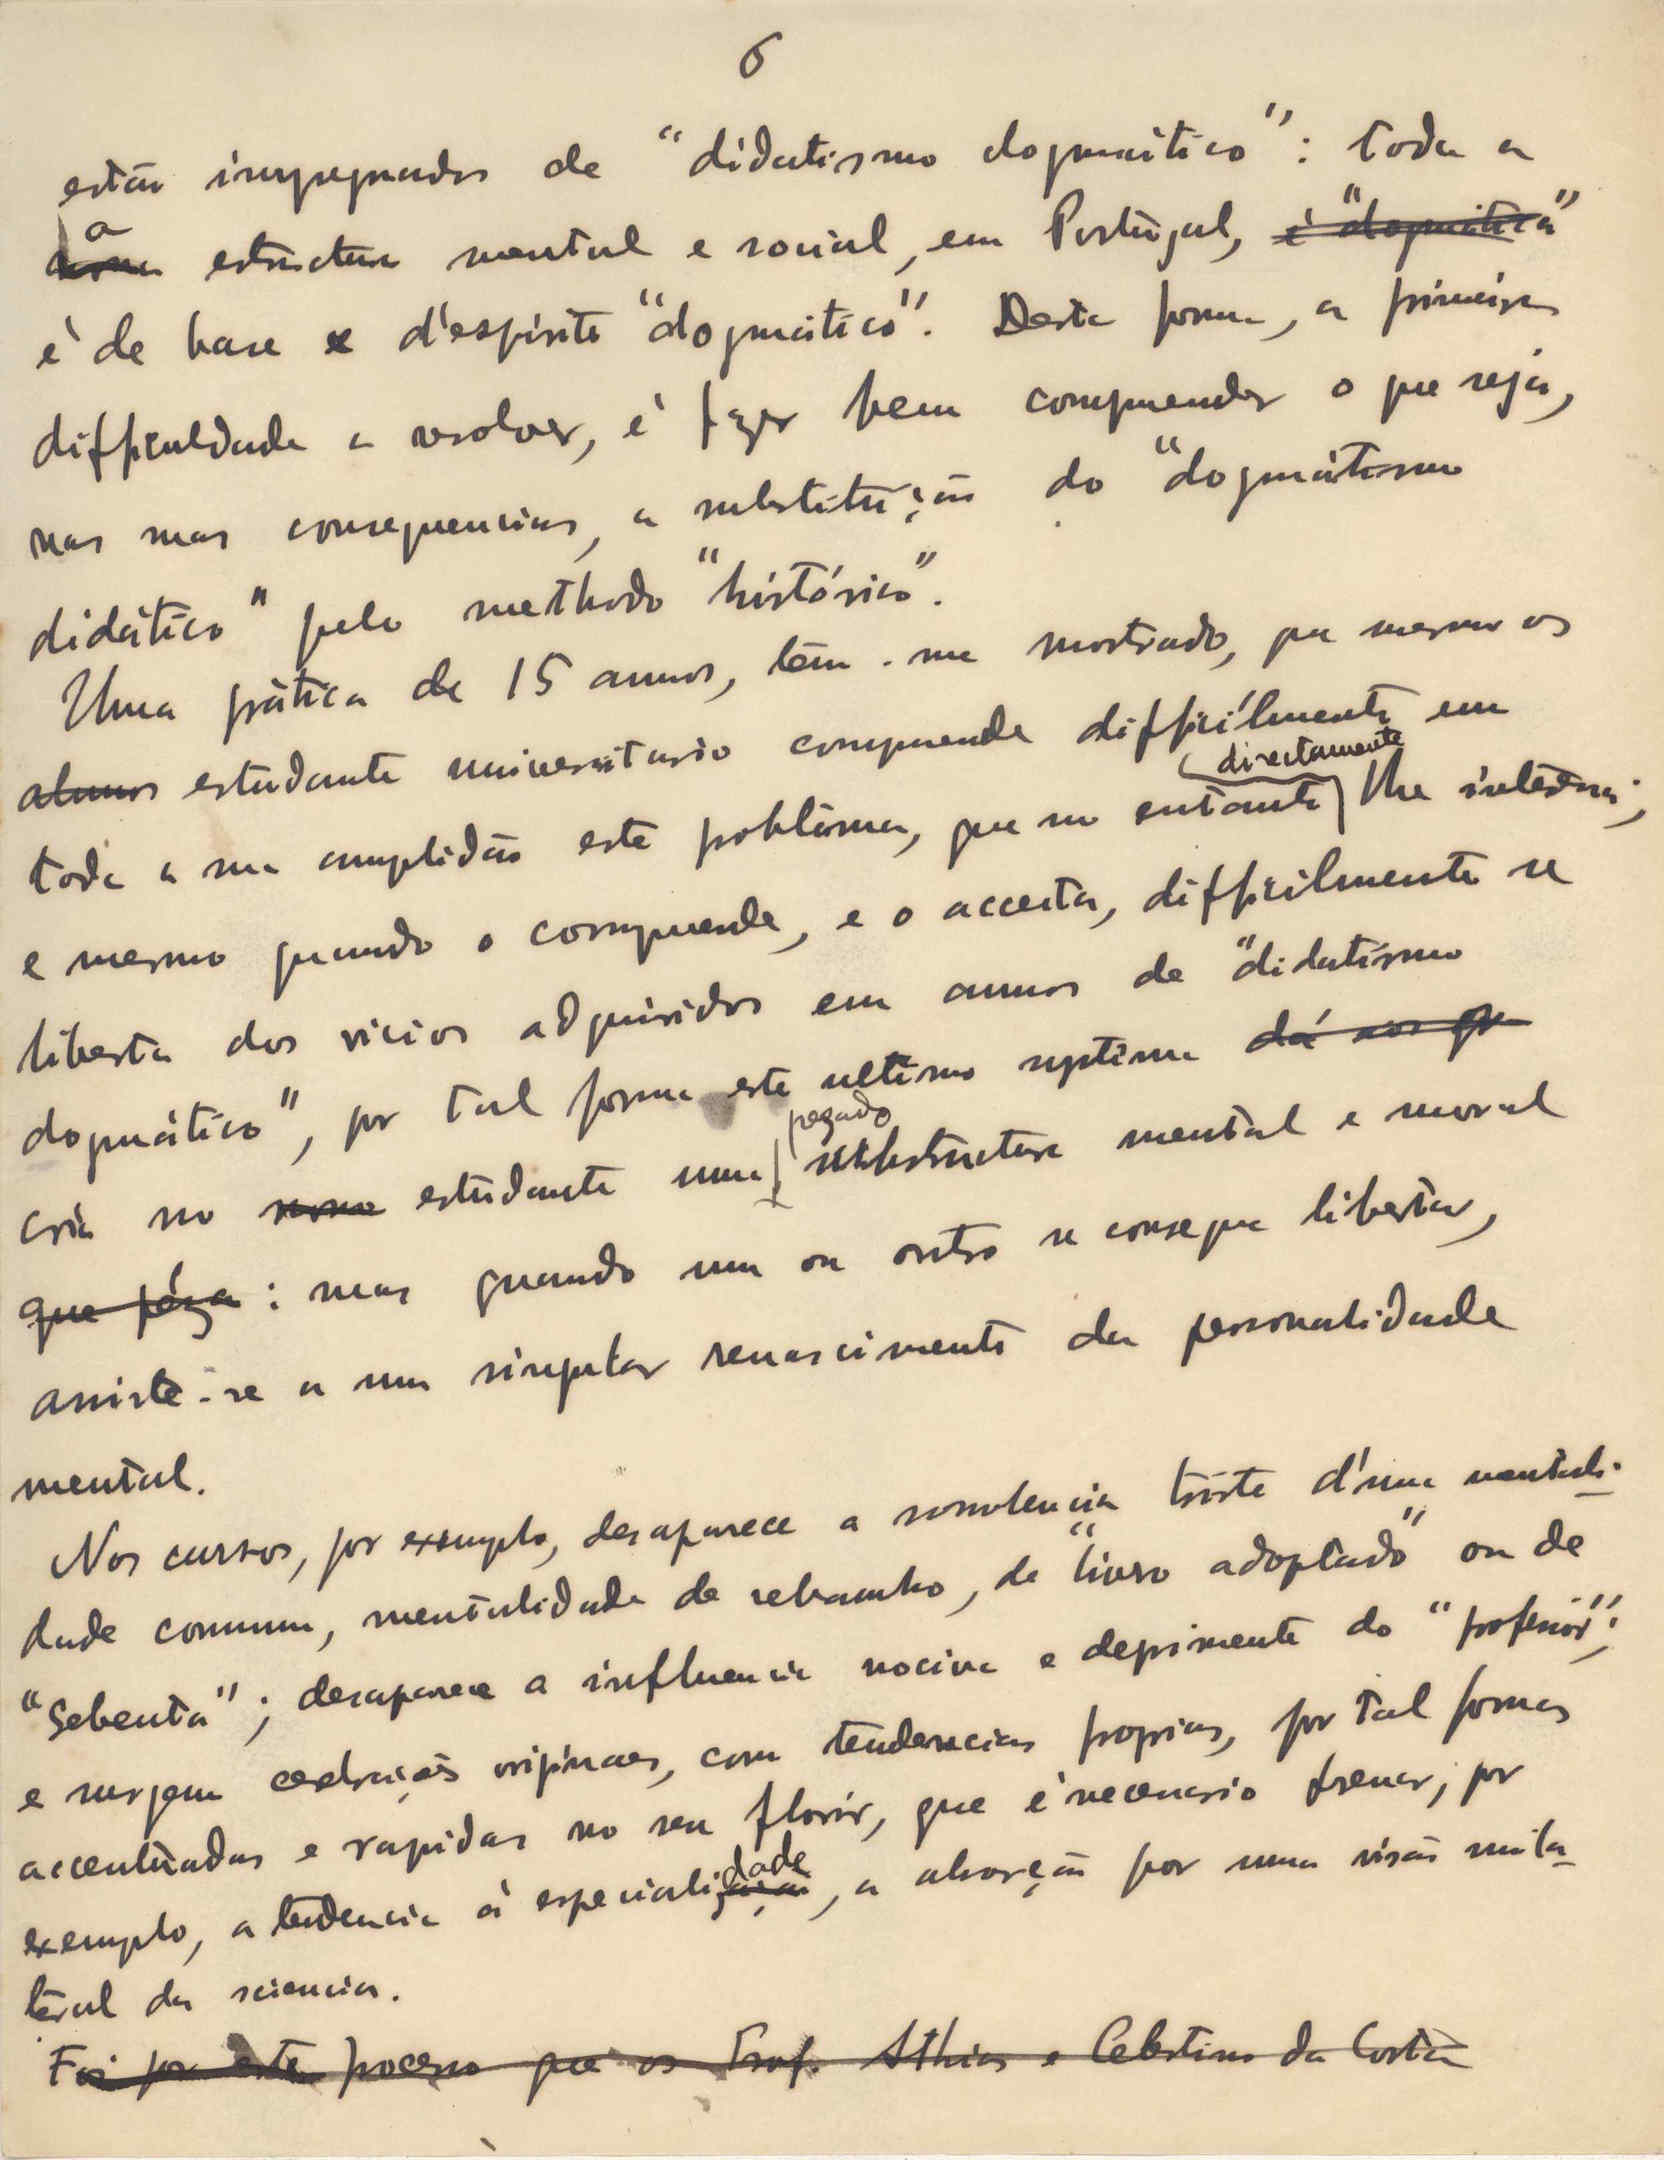 6
estão impregnados de "didatismo dogmático": toda a
a
nossa estructura mental e social, em Portugal, é "dogmática"
é de base e d'espirito "dogmático". Desta forma, a primeira
difficuldade a resolver, é fazer bem comprender o que seja,
nas suas consequencias, a substituição do "dogmátismo
didático" pelo methodo "histórico".
Uma prática de 15 annos, têm-me mostrado, que mesmo os
alunos estudante universitario comprende difficilmente em
directamente
toda a sua amplidão este problêma, que no entanto lhe interéssa;
e mesmo quando o comprende, e o acceita, difficilmente se
liberta dos vicios adquiridos em annos de "didatismo
dogmático", por tal forma este ultimo systema dá aos
pezado
cria no novo estudante uma substructura mental e moral
que péza: mas quando um ou outro se consegue libertar,
assiste-se a um singular renascimento da personalidade
mental.
Nos cursos, por exemplo, desaparece a somolencia triste d'uma mentali-
dade commum, mentalidade de rebanho, de "livro adoptado" ou de
"Sebenta"; desaparece a influencia nociva e deprimente do "professor";
e surgem originaes, com tendencias proprias, por tal forma
accentuadas e rapidas no seu florir, que é necessario frenar; por
dade
exemplo, a tendencia á especiali, a absorção por uma visão unila-
teral da sciencia.
Foi por este processo que os Prof. Athias e Celestino da Costa